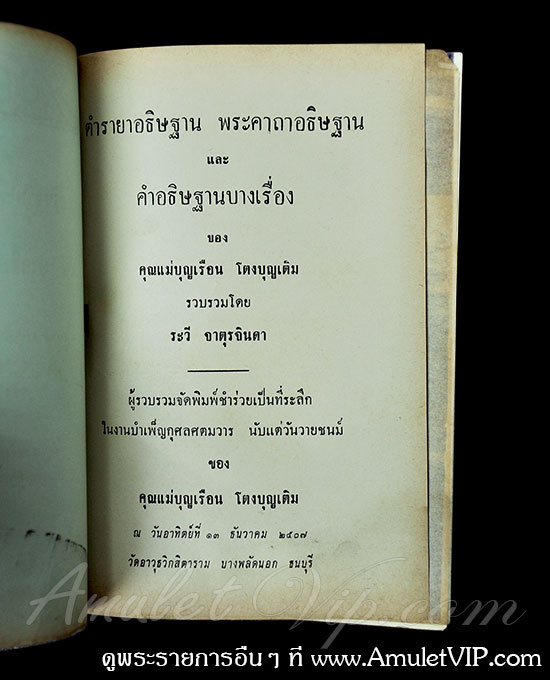 ตำรายาอธิษฐาน พระคาถาอธิษฐาน
และ
คำอธิษฐานบางเรื่อง
ของ
คุณแม่บุญเรือน โตงบุญเติม
รวบรวมโดย
ระวี จาตุรจินดา
ผู้รวบรวมจัดพิมพ์ชำร่วยเป็นที่ระลึก
ในงานบำเพ็ญกุศลศตมวาร นับแต่วันวายชนม์
ของ
คุณแม่บุญเรือน โตงบุญเติม
ณ วันอาทิตย์ที่ ๑๓ ธันวาคม ๒๕๐๗
วัดอาวุธวิกสิตาราม บางพลัดนอก ธนบุรี
Amulet Vip.com
ดูพระรายการอื่นๆ ที่ www.AmuletVIP.com